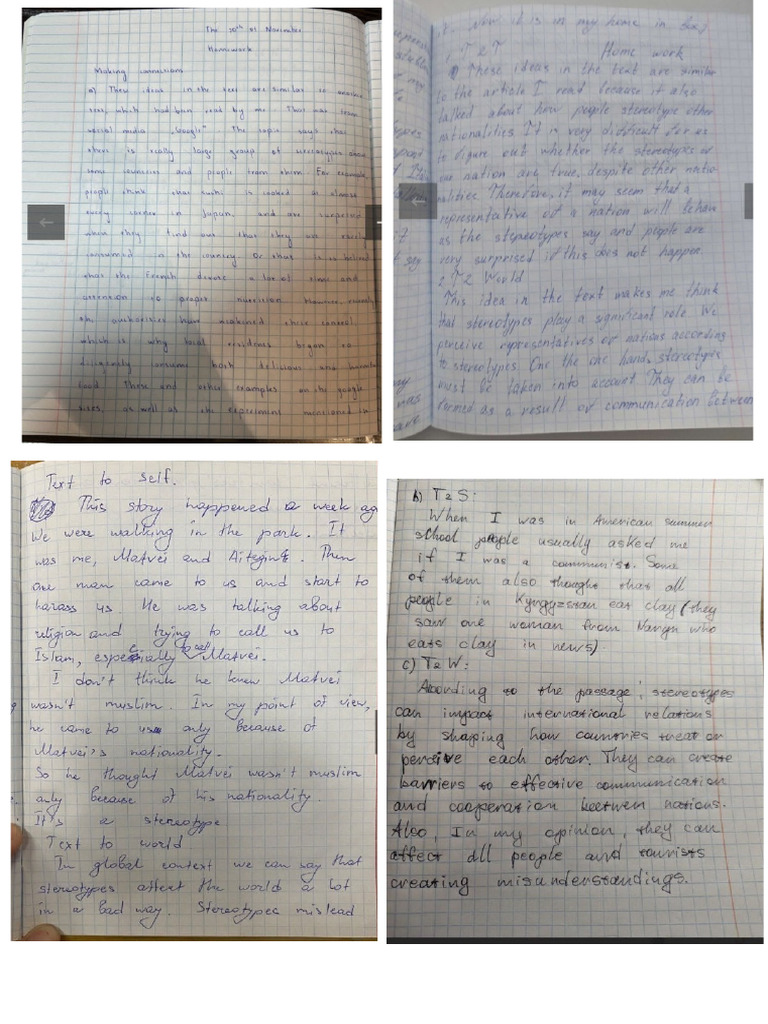 The 10th of November
Homework
Making connections
a) These ideas in the text are similar to another
text, which had been read by me. That was from
social media „Google". The topic says that
there is really large group of stereotypes about
some countries and people from them. For example,
people think that sushi is cooked at almost
every corner in Japan, and are surprised
when they find out that they are rarely
consumed in the country. Or thus it is believed
that the French devote a lot of time and
attention to proper nutrition. However, recently
the authorities have weakened their control,
which is why local residents began to
diligently consume both delicious and harmful
food. These and other examples on the google
sites, as well as the experiment mentioned in
Now it is in my home in box)
1 T 2 T Home work
These ideas in the text are similar
to the article I read because it also
talked about how people stereotype other
nationalities. It is very difficult for us
to figure out whether the stereotypes of
our nation are true, despite other natio-
nalities. Therefore, it may seem that a
representative of a nation will behave
as the stereotypes say and people are
very surprised if this does not happen.
2 T 2 World
This idea in the text makes me think
that stereotypes play a significant role. We
perceive representatives of nations according
to stereotypes. One the one hand, stereotypes
must be taken into account. They can be
formed as a result of communication between
Text to self.
This story happened a week ago
We were walking in the park. It
was me, Matvei and Then
one man came to us and start to
harass us. He was talking about
religion and trying to call us to
Islam, especially to call Matvei.
I don't think he knew Matvei
wasn't muslim. In my point of view,
he came to us only because of
Matvei's nationality.
So he thought Matvei wasn't muslim
only because of his nationality.
It's a stereotype
Text to world
In global context we can say that
stereotypes affect the world a lot
in a bad way. Stereotypes mislead
b) T2S:
When I was in American summer
school people usually asked me
if I was a communist. Some
of them also thought that all
people in Kyrgyzstan eat clay (they
saw one woman from Naryn who
eats clay in news).
c) T2W:
According to the passage, stereotypes
can impact international relations
by shaping how countries treat or
perceive each other. They can create
barriers to effective communication
and cooperation between nations.
Also, In my opinion, they can
affect all people and tourists
creating misunderstandings.